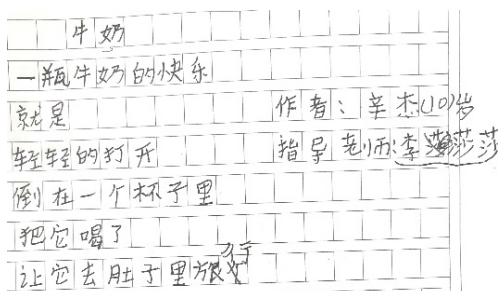 牛奶
一瓶牛奶的快乐
就是
作者：辛杰(10)岁
轻轻的打开
指导老师:李莎莎
倒在一个杯子里
把它喝了
让它去肚子里旅行